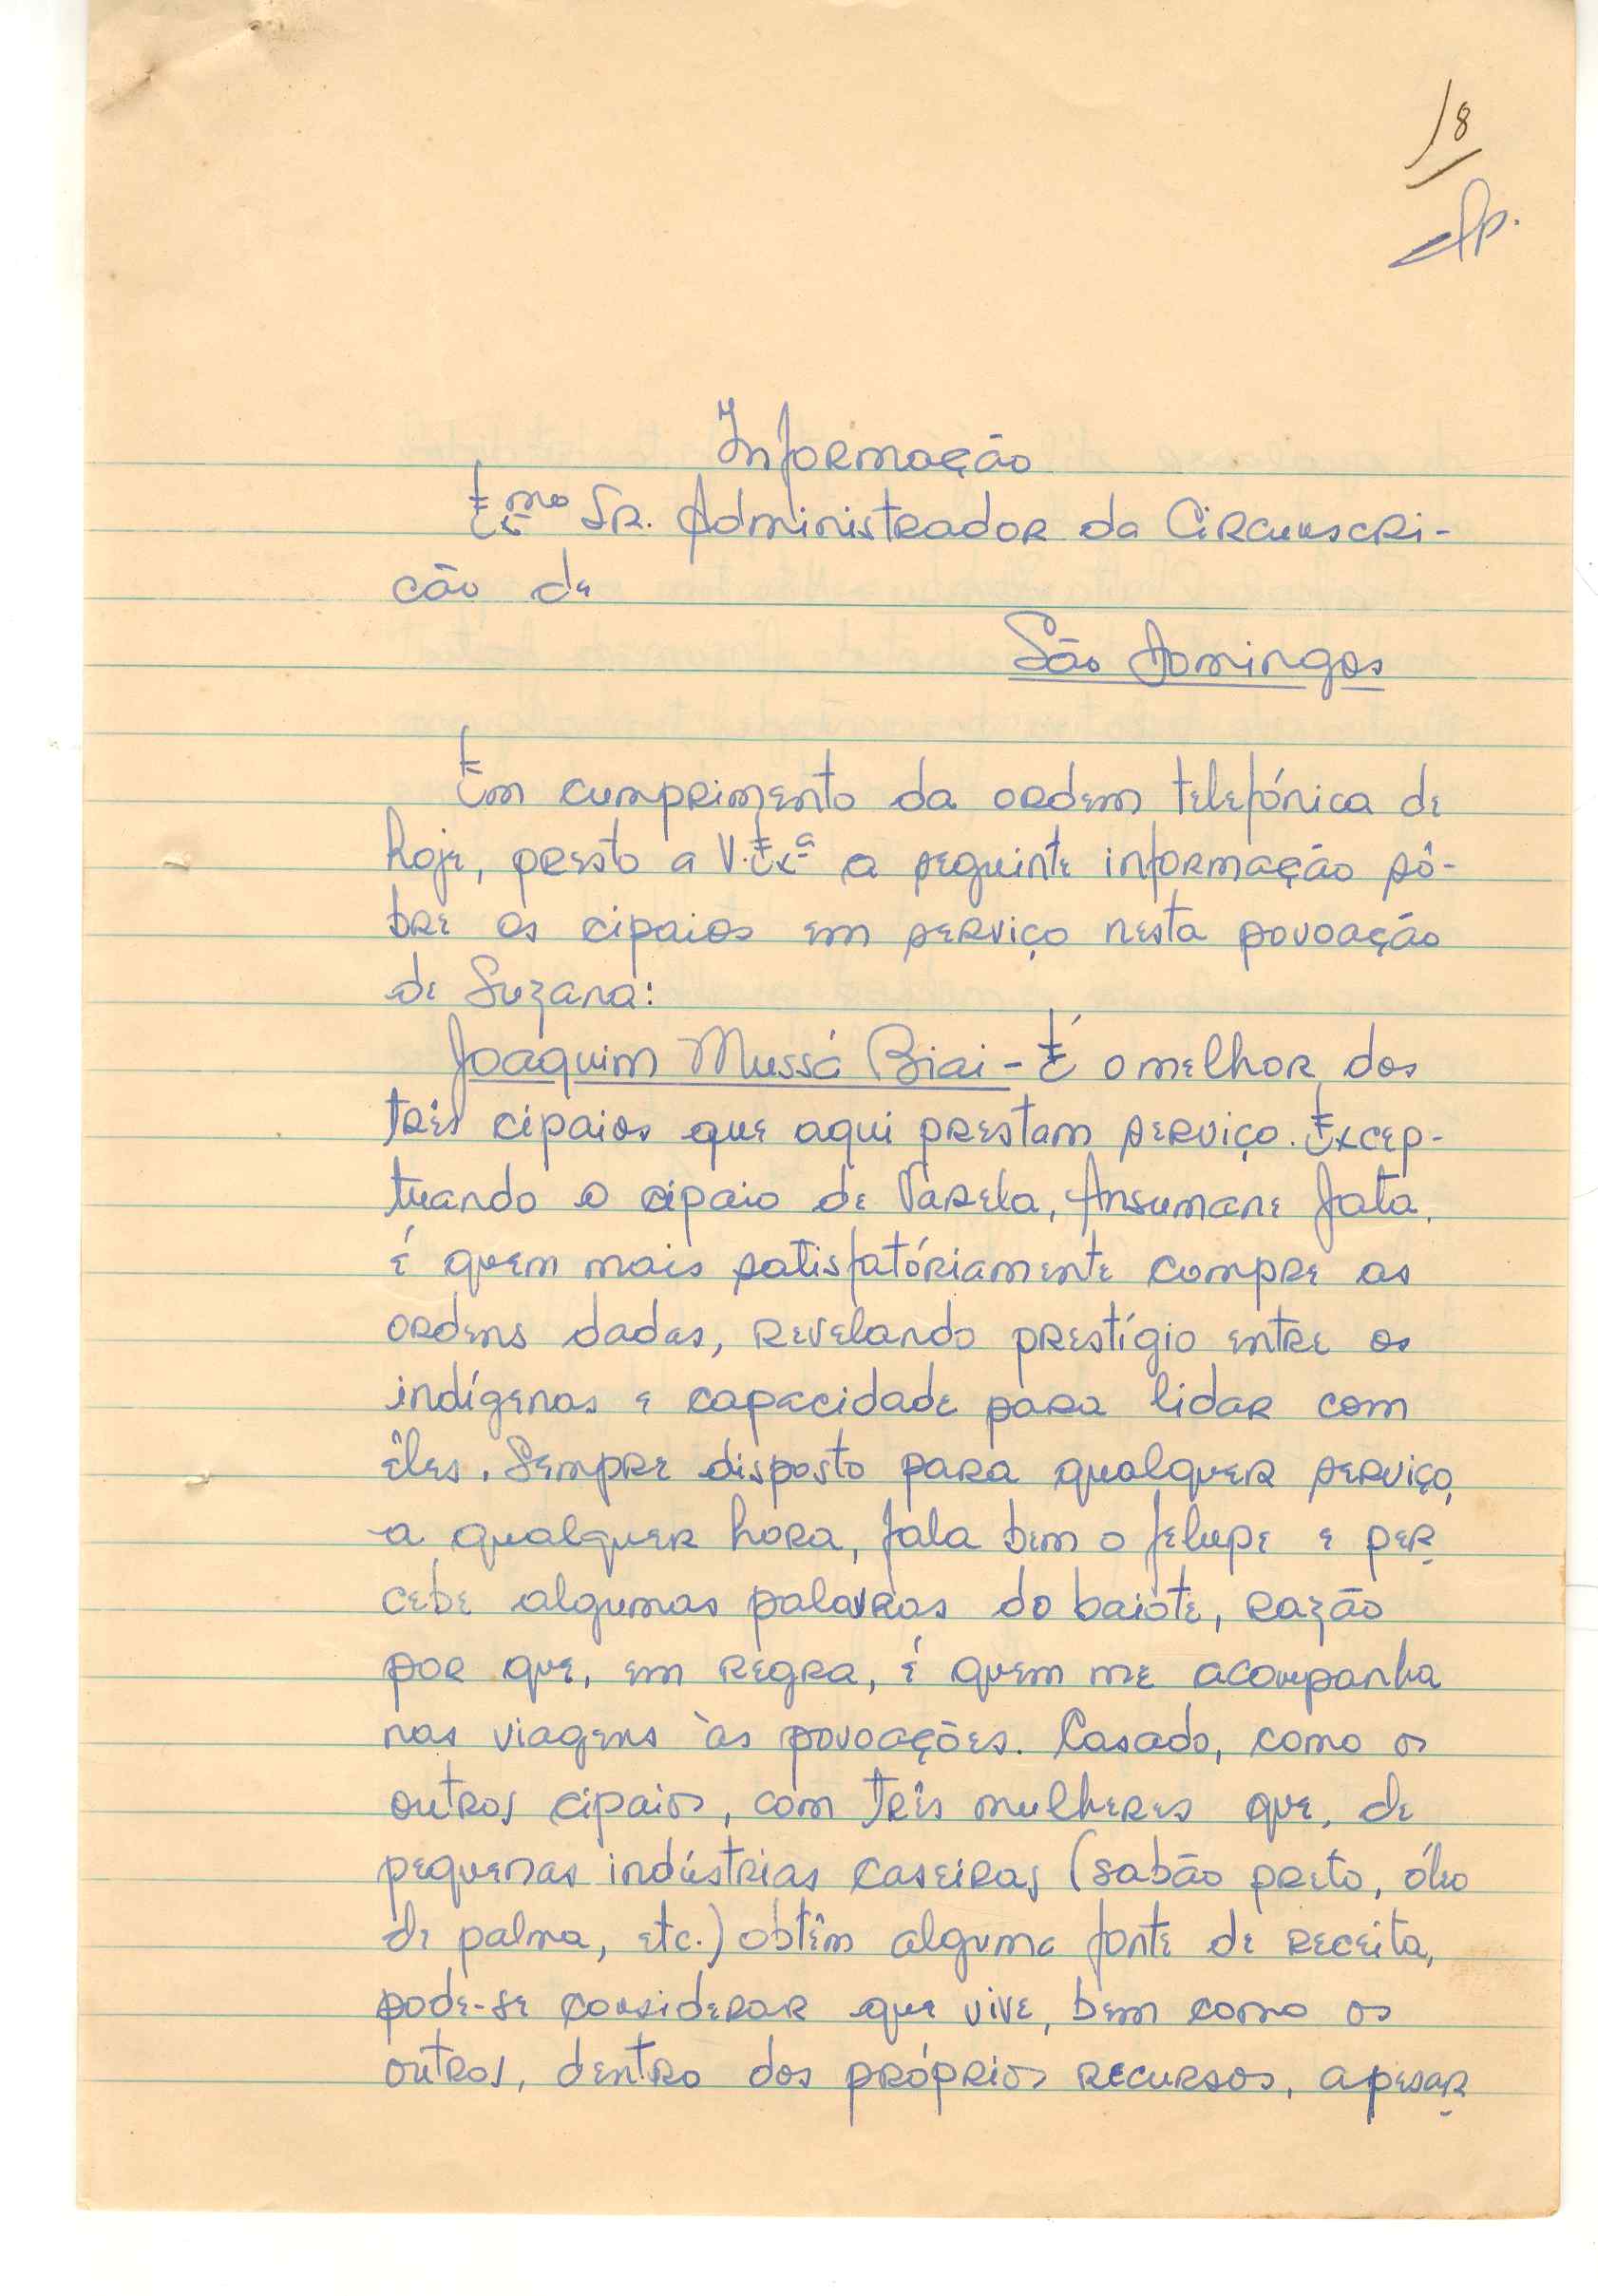 18
Informação
Exmo Sr. Administrador da Circunscri-
cão de
São Domingos
Em cumprimento da ordem telefónica de
hoje, presto a V. Exª a seguinte informação sô-
bre os cipaios em serviço nesta povoação
de Suzana:
Joaquim Mussá Biai - É o melhor dos
três cipaios que aqui prestam serviço. Excep-
tuando o cipaio de Varela, Ansumane Jata,
é quem mais satisfatóriamente cumpre as
ordens dadas, revelando prestígio entre os
indígenas e capacidade para lidar com
êles. Sempre disposto para qualquer serviço,
a qualquer hora, fala bem o felupe e per
cebe algumas palavras do baiote, razão
por que, em regra, é quem me acompanha
nas viagens às povoações. Casado, como os
outros cipaios, com três mulheres que, de
pequenas indústrias caseiras (sabão preto, óleo
de palma, etc.) obtêm alguma fonte de receita,
pode-se considerar que vive, bem como os
outros, dentro dos próprios recursos, apesar